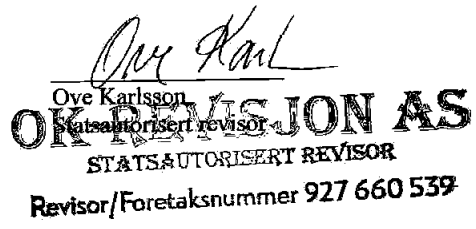 Ove Karl
Ove Karlsson
Statsautorisert revisor
OK REVISJON AS
STATSAUTORISERT REVISOR
Revisor/Foretaksnummer 927 660 539